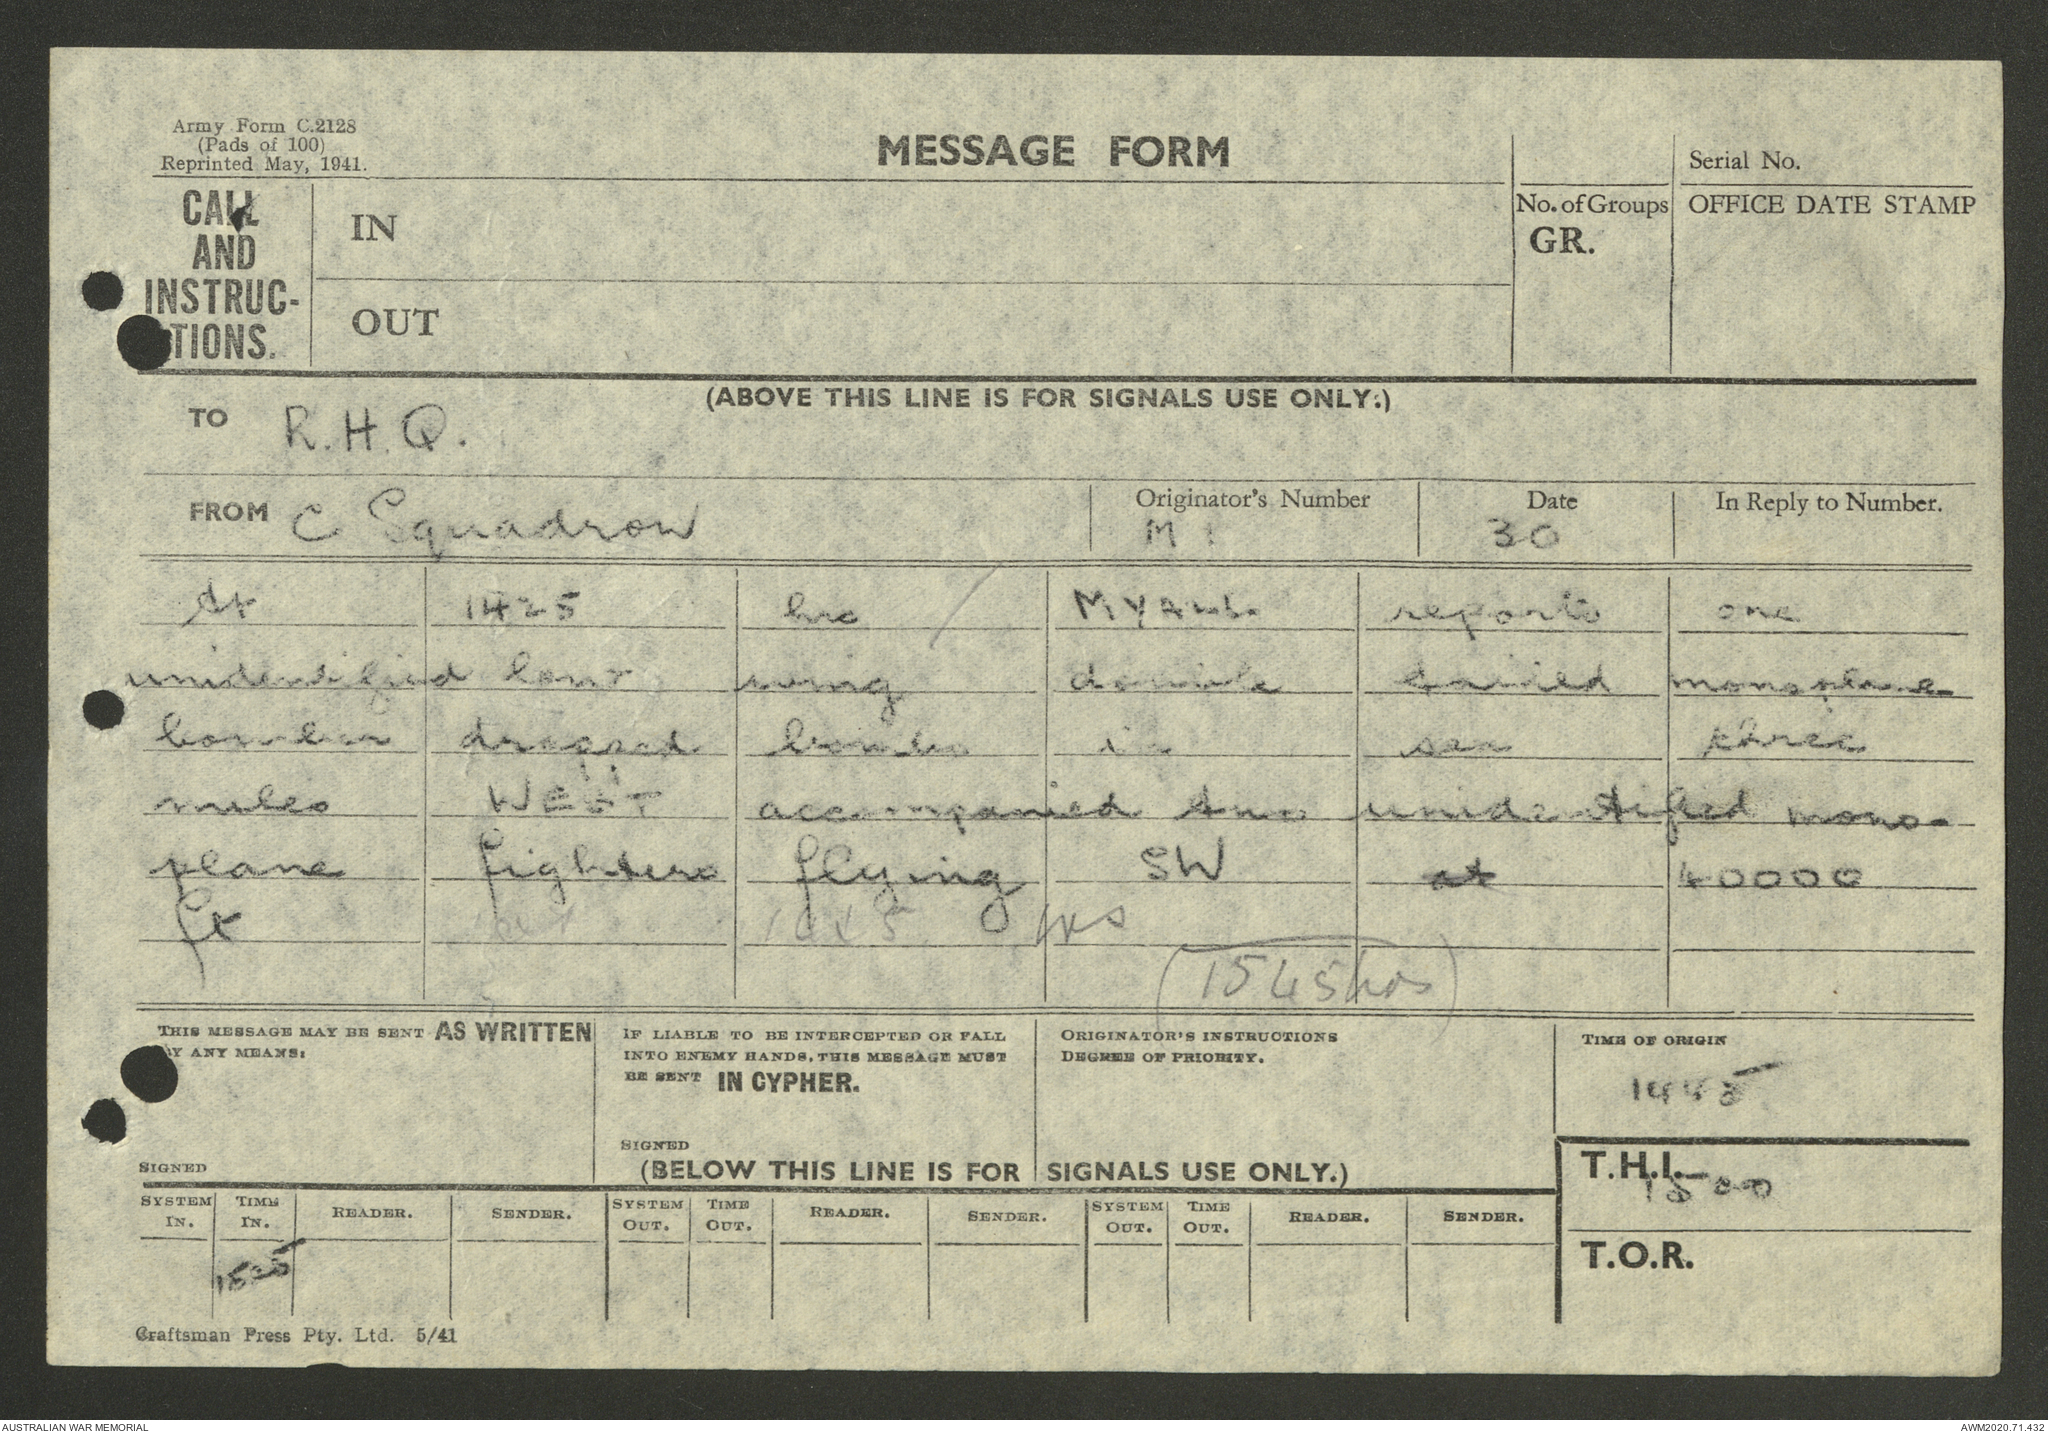 Army Form C.2128
(Pads of 100)
Reprinted May, 1941.
MESSAGE FORM
Serial No.
CALL
AND
INSTRUC-
TIONS.
IN
OUT
No. of Groups
GR.
OFFICE DATE STAMP
(ABOVE THIS LINE IS FOR SIGNALS USE ONLY.)
TO R.H.Q.
FROM C Squadron
Originator's Number
M 1
Date
30
In Reply to Number.
At 1425 hrs reports one
unidentified low wing double tailed monoplane
bomber dropped bombs in sea three
miles WEST accompanied two unidentified mono-
plane fighters flying SW at 40000
ft hrs
(1545 hrs)
THIS MESSAGE MAY BE SENT AS WRITTEN
BY ANY MEANS:
IF LIABLE TO BE INTERCEPTED OR FALL
INTO ENEMY HANDS, THIS MESSAGE MUST
BE SENT IN CYPHER.
ORIGINATOR'S INSTRUCTIONS
DEGREE OF PRIORITY.
TIME OF ORIGIN
1445
SIGNED
SIGNED
(BELOW THIS LINE IS FOR SIGNALS USE ONLY.)
T.H.I.
1500
T.O.R.
SYSTEM IN.
TIME IN.
READER.
SENDER.
SYSTEM OUT.
TIME OUT.
READER.
SENDER.
SYSTEM OUT.
TIME OUT.
READER.
SENDER.
1525
Craftsman Press Pty. Ltd. 5/41
AUSTRALIAN WAR MEMORIAL
AWM2020.71.432